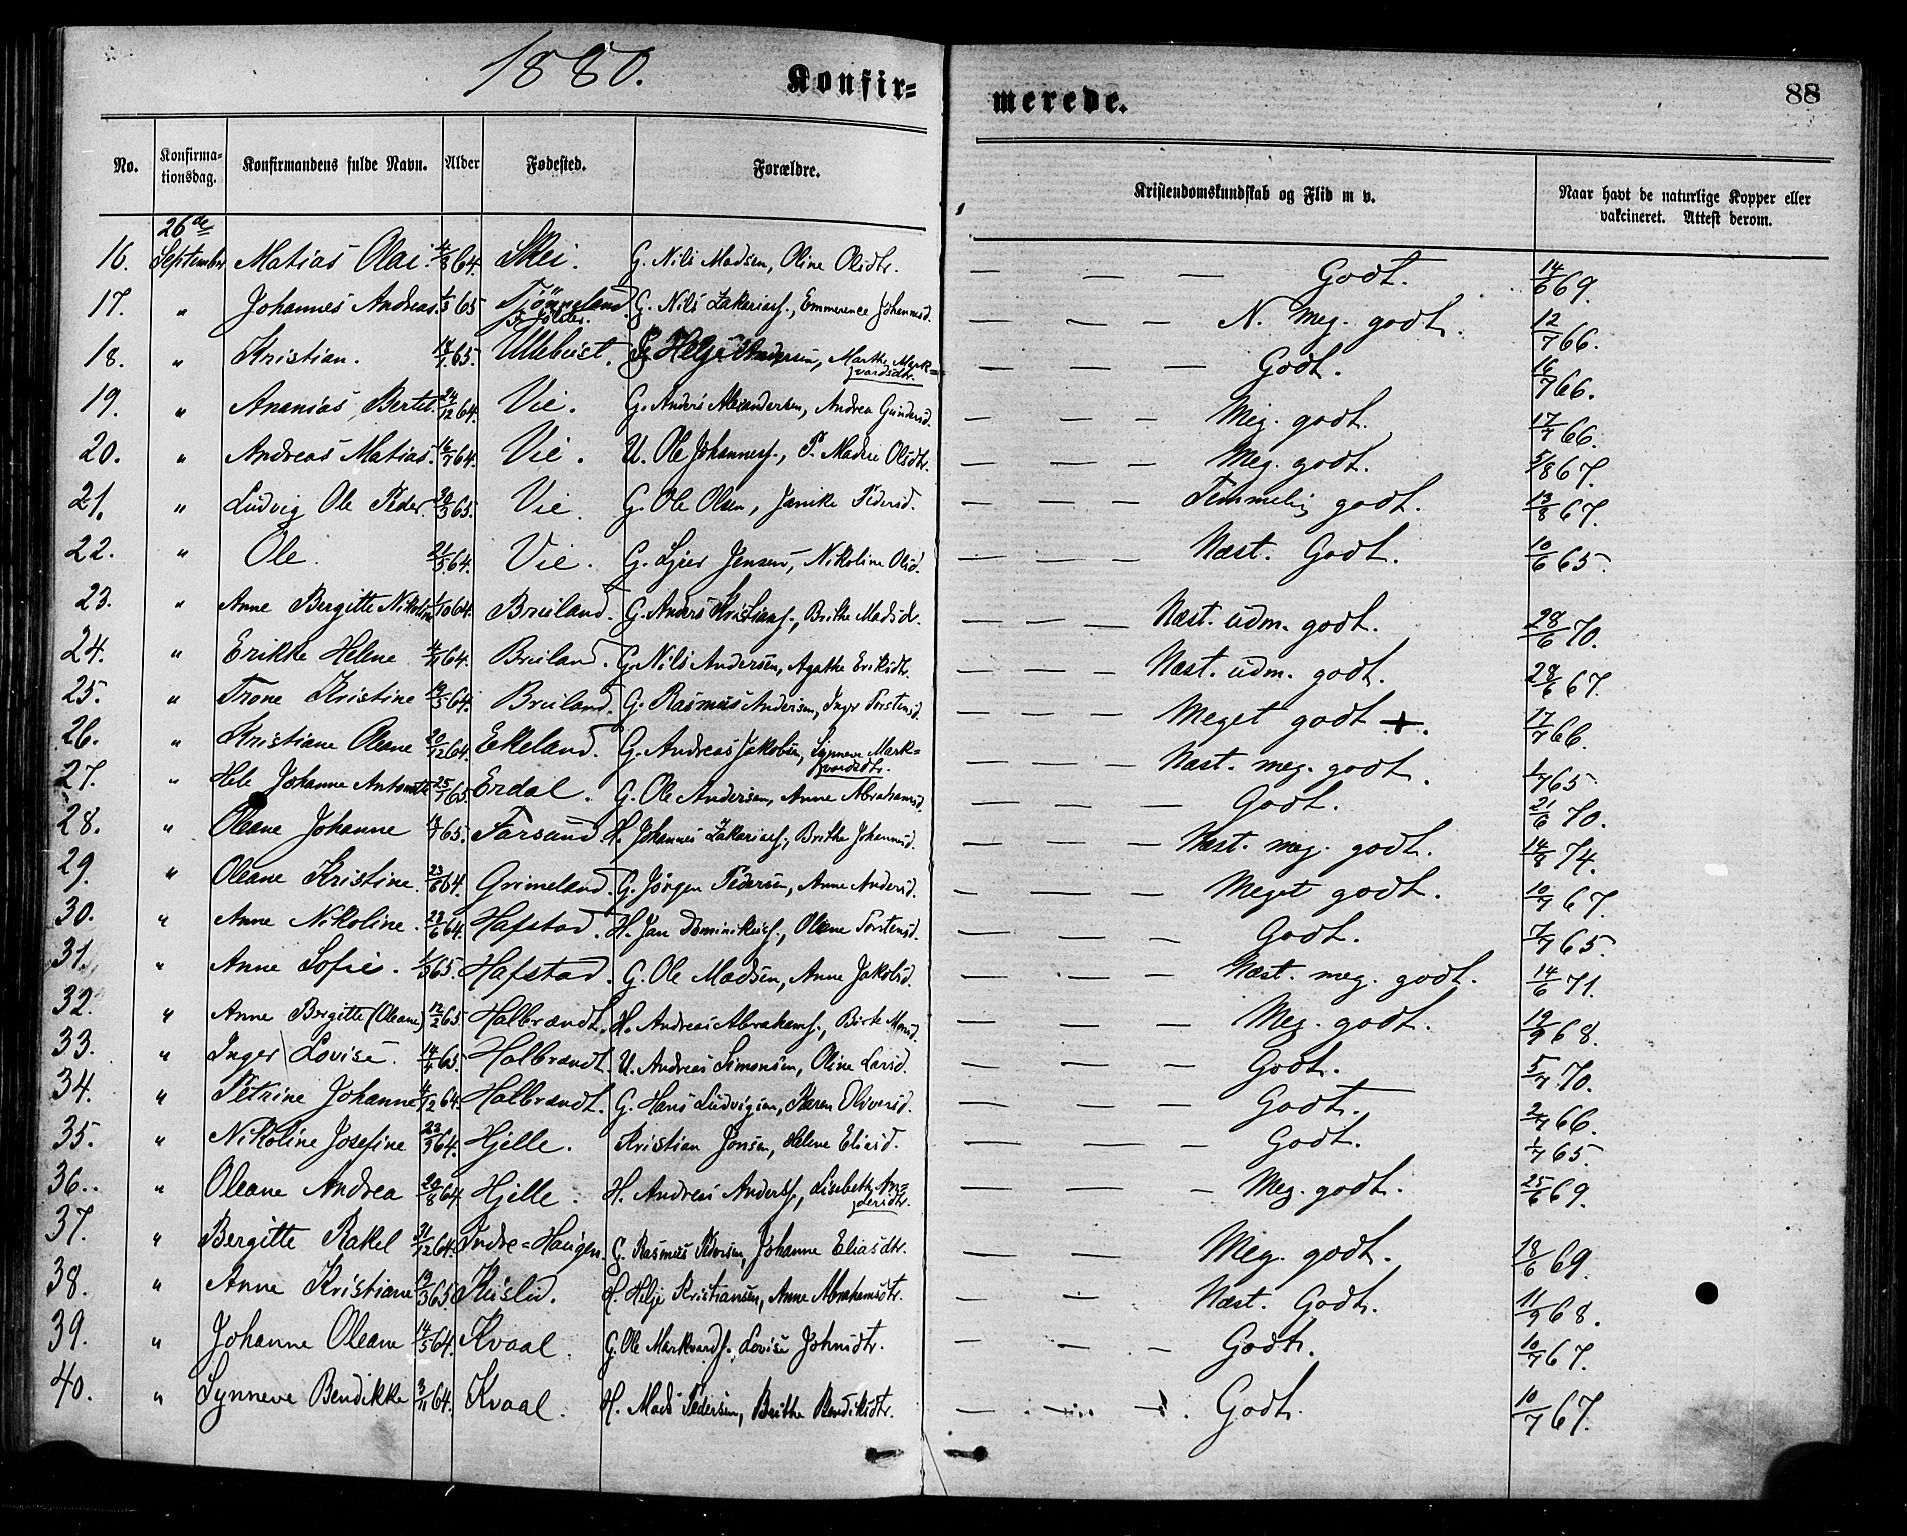 1880.
Konfir=
merede.
88
No.
Konfirma-
tionsdag.
Konfirmandens fulde Navn.
Alder
Fødested.
Forældre.
Kristendomskundskab og Flid m v.
Naar havt de naturlige Kopper eller
vakcineret. Attest derom.
26de
16. September Matias Olai. 4/8 64. Skei. G. Nils Madsen, Oline Olsdtr. — — — Godt. 14/6 69.
17. " Johannes Andreas. 1/3 65 Tjönneland. G. Nils Zakariasf., Emmerence Johannesd. — — — N. meg. godt. 12/7 66.
I Jölster.
18. " Kristian. 65. Ullebust. Helje Andersen, Marthe Mark= — — — Godt. 16/7 66.
vardsdtr.
19. " Ananias Bertel. 24/12 64. Vie. G. Anders Alexandersen, Andrea Gundersd. — — — Meg. godt. 17/7 66.
20. " Andreas Matias. 16/7 64. Vie. U. Ole Johannesf., P. Madse Olsdtr. — — — Meg. godt. 5/8 67.
21. " Ludvig Ole Peder. 30/3 65. Vie. G. Ole Olsen, Janike Pedersd. — — — Temmelig godt. 13/8 67.
22. " Ole. 21/5 64. Vie. G. Sjur Jensen, Nikoline Olsd. — — — Næst. Godt. 10/6 65.
23. " Anne Bergitte Nikoline 1/10 64. Bruland. G. Anders Kristiansf., Brithe Madsd. — — — Næst. udm. godt. 28/6 70.
24. " Erikke Helene 64. Bruland. G. Nils Andersen, Agathe Eriksdtr. — — — Næst. udm. godt. 28/6 67.
25. " Trone Kristine 19/5 64. Bruland. G. Rasmus Andersen, Inger Torstensd. — — — Meget godt +. 17/7 66.
26. " Kristiane Oleane 20/12 64. Eikeland. G. Andreas Jakobsen, Synneve Mark= — — — Næst. meg. godt. 1/7 65
vardsdtr.
27. " Johanne Antonette 25/1 65. Erdal. G. Ole Andersen, Anne Abrahamsd. — — — Godt. 21/6 70.
28. " Oleane Johanne 65. Farsund. H. Johannes Zakariasf., Brithe Johannesd. — — — Næst. meg. godt. 74.
29. " Oleane Kristine. 23/6 64. Grimeland. G. Jörgen Pedersen, Anne Andersd. — — — Meget godt. 10/7 67.
30. " Anne Nikoline. 64. Hafstad. H. Jan Dominikusf., Oleane Torstensd. — — — Godt. 7/7 65.
31. " Anne Sofie. 65. Hafstad. G. Ole Madsen, Anne Jakobsd. — — — Næst. meg. godt. 14/6 71.
32. " Anne Bergitte (Oleane) 12/2 65. Halbrændt. H. Andreas Abrahamsf., Börte Monsd. — — — Meg. godt. 68.
33. " Inger Lovise. 14/4 65. Halbrændt. U. Andreas Simonsen, Oline Larsd. — — — Godt. 5/7 70.
34. " Petrine Johanne 4/12 64. Halbrændt. G. Hans Ludvigsen, Karen Oliversd. — — — Godt. 2/7 66.
35. " Nikoline Josefine 64. Hjelle. Kristian Jonsen, Helene Eliasd. — — — Godt. 1/7 65.
36. " Oleane Andrea 29/8 64. Hjelle. H. Andreas Andersf., Lisebeth An= — — — Meg. godt. 25/6 69.
dersdtr.
37. " Bergitte Rakel 31/12 64. Indre=Haugen. G. Rasmus Pedersen, Johanne Eliasdtr. — — — Meg. godt. 18/6 69.
38. " Anne Kristiane 19/3 65. Kuslid. H. Helje Kristiansen, Anne Abrahamsdtr. — — Næst. Godt. 11/9 68.
39. " Johanne Oleane 14/5 64. Kvaal. G. Ole Markvardsf., Lovise Johnsdtr. — — — Godt. 10/7 67.
40. " Synneve Bendikke 3/11 64. Kvaal. H. Mads Pedersen, Brithe Bendiksdtr. — — — Godt. 10/7 67.